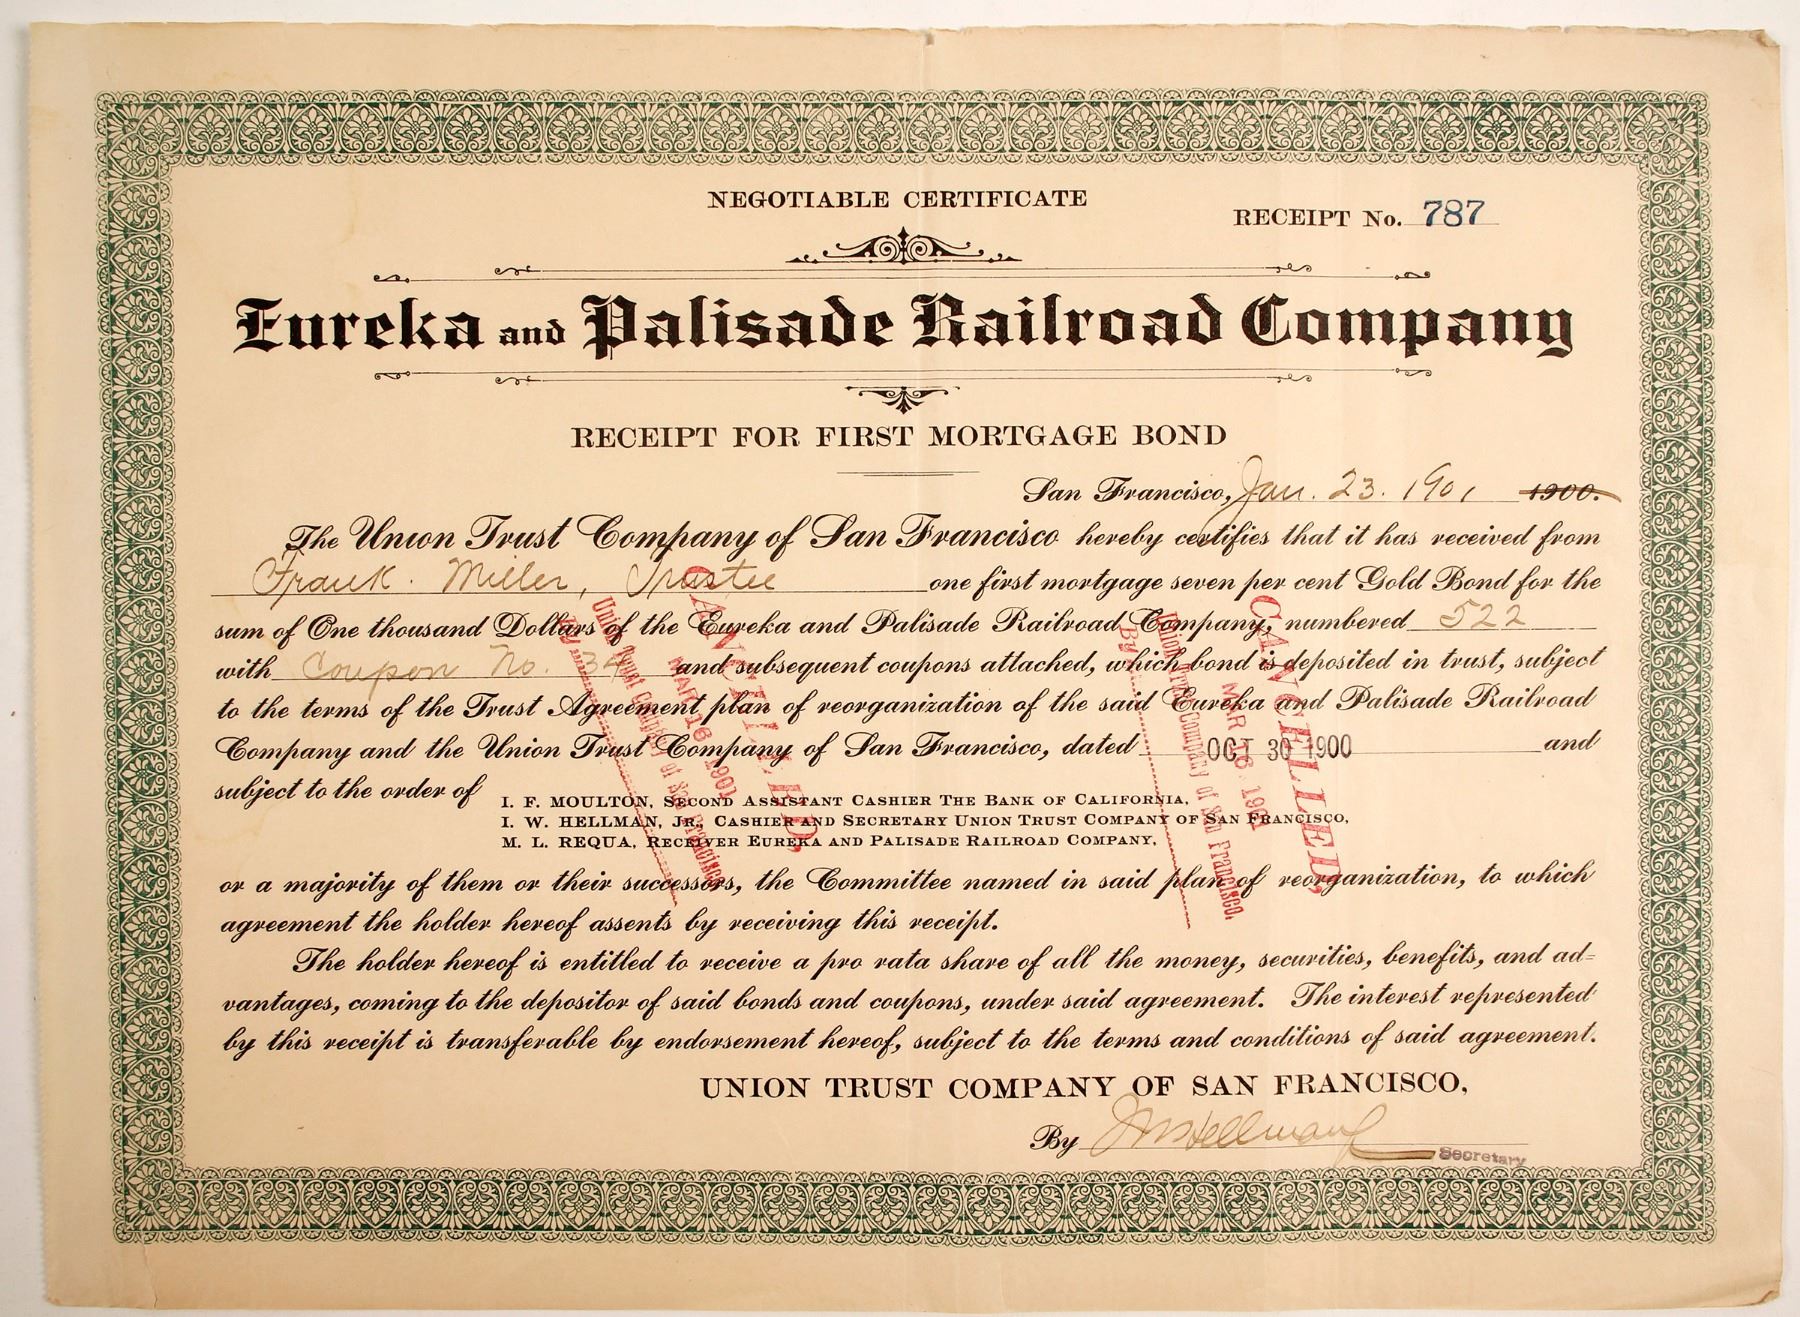 NEGOTIABLE CERTIFICATE
RECEIPT No. 787
Eureka and Palisade Railroad Company
RECEIPT FOR FIRST MORTGAGE BOND
San Francisco, Jan. 23. 1901 1900.
The Union Trust Company of San Francisco hereby certifies that it has received from
Frank. Miller, Trustee one first mortgage seven per cent Gold Bond for the
sum of One thousand Dollars of the Eureka and Palisade Railroad Company, numbered 522
with Coupon No. 34 and subsequent coupons attached, which bond is deposited in trust, subject
to the terms of the Trust Agreement plan of reorganization of the said Eureka and Palisade Railroad
Company and the Union Trust Company of San Francisco, dated OCT 30 1900 and
subject to the order of
I. F. MOULTON, SECOND ASSISTANT CASHIER THE BANK OF CALIFORNIA,
I. W. HELLMAN, JR., CASHIER AND SECRETARY UNION TRUST COMPANY OF SAN FRANCISCO,
M. L. REQUA, RECEIVER EUREKA AND PALISADE RAILROAD COMPANY,
or a majority of them or their successors, the Committee named in said plan of reorganization, to which
agreement the holder hereof assents by receiving this receipt.
The holder hereof is entitled to receive a pro rata share of all the money, securities, benefits, and ad=
vantages, coming to the depositor of said bonds and coupons, under said agreement. The interest represented
by this receipt is transferable by endorsement hereof, subject to the terms and conditions of said agreement.
UNION TRUST COMPANY OF SAN FRANCISCO,
By IW Hellman Jr
Secretary
CANCELLED,
MAR 16 1901
Union Trust Company of San Francisco
By
CANCELLED,
MAR 16 1901
Union Trust Company of San Francisco.
By